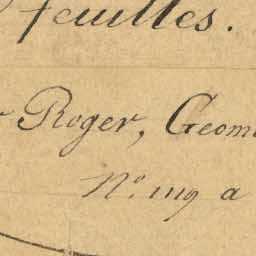 feuilles.
Roger, Geom
N.º 1119 a